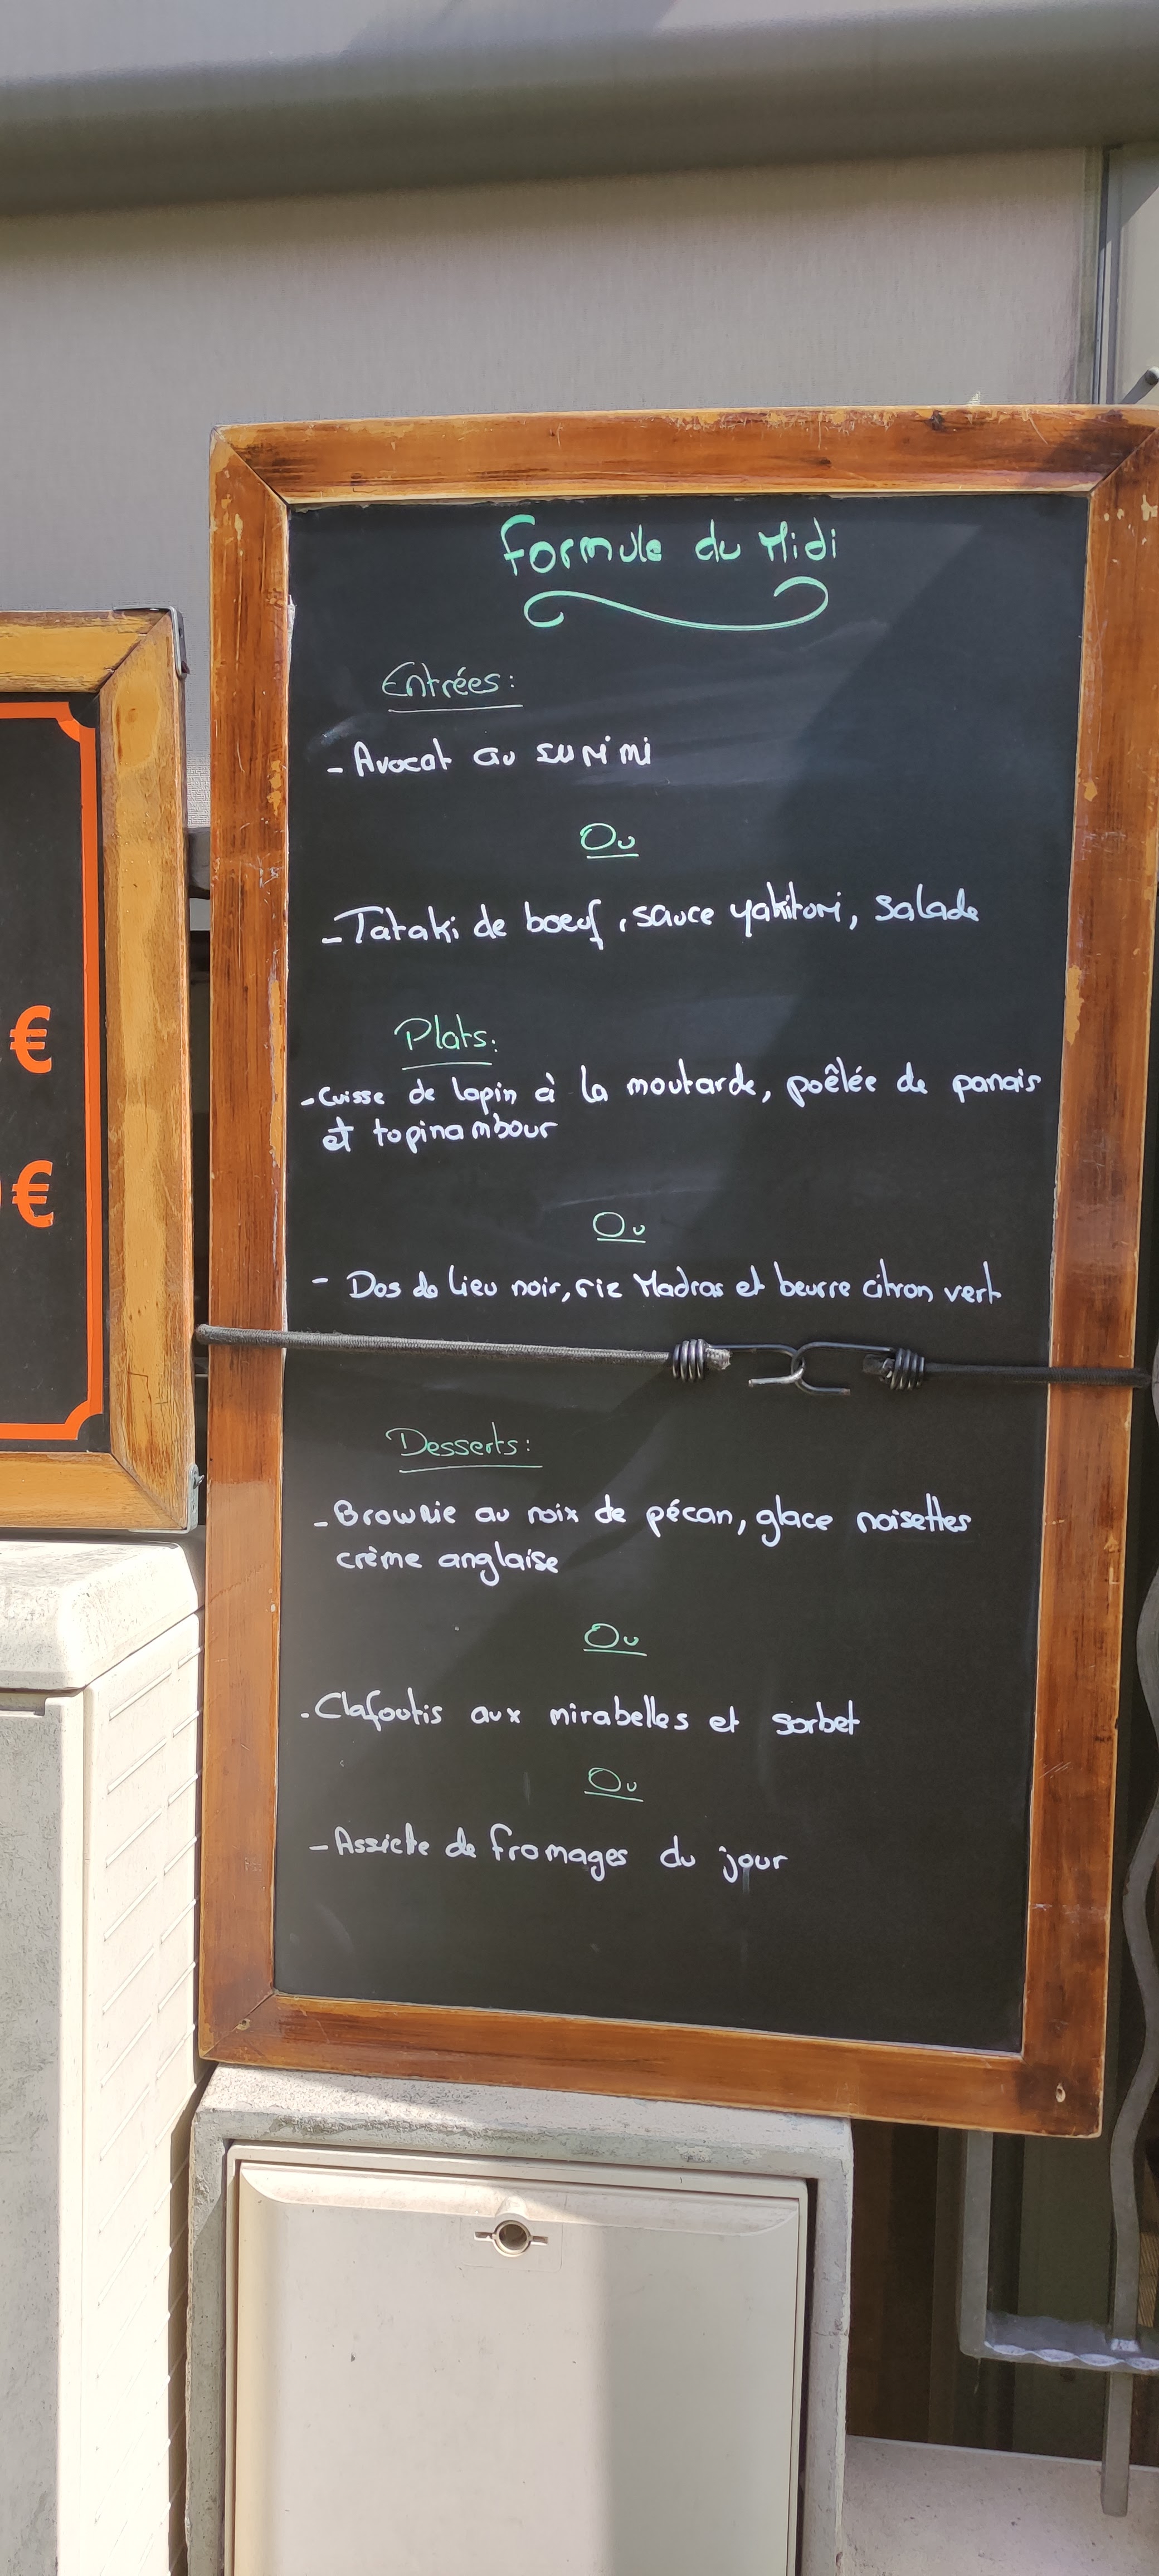 €
€
Formule du Midi
Entrées:
- Avocat au surimi
Ou
- Tataki de boeuf, sauce yakitori, salade
Plats:
- Cuisse de lapin à la moutarde, poêlée de panais
et topinambour
Ou
- Dos de lieu noir, riz Madras et beurre citron vert
Desserts:
- Brownie au noix de pécan, glace noisettes
crème anglaise
Ou
- Clafoutis aux mirabelles et sorbet
Ou
- Assiette de fromages du jour